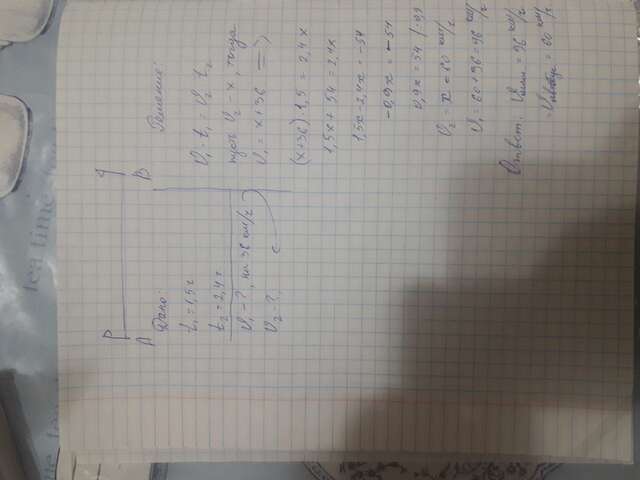 A B
Дано:
t₁ = 1,5 ч
t₂ = 2,4 ч
V₁ - ?, на 36 км/ч
V₂ - ?
Решение:
V₁ · t₁ = V₂ · t₂
пусть V₂ - x, тогда
V₁ = x + 36 =>
(x+36) · 1,5 = 2,4x
1,5x + 54 = 2,4x
1,5x - 2,4x = -54
-0,9x = -54
0,9x = 54 / :0,9
V₂ = x = 60 км/ч
V₁ = 60 + 36 = 96 км/ч
Ответ: V = 96 км/ч
V = 60 км/ч
tea time